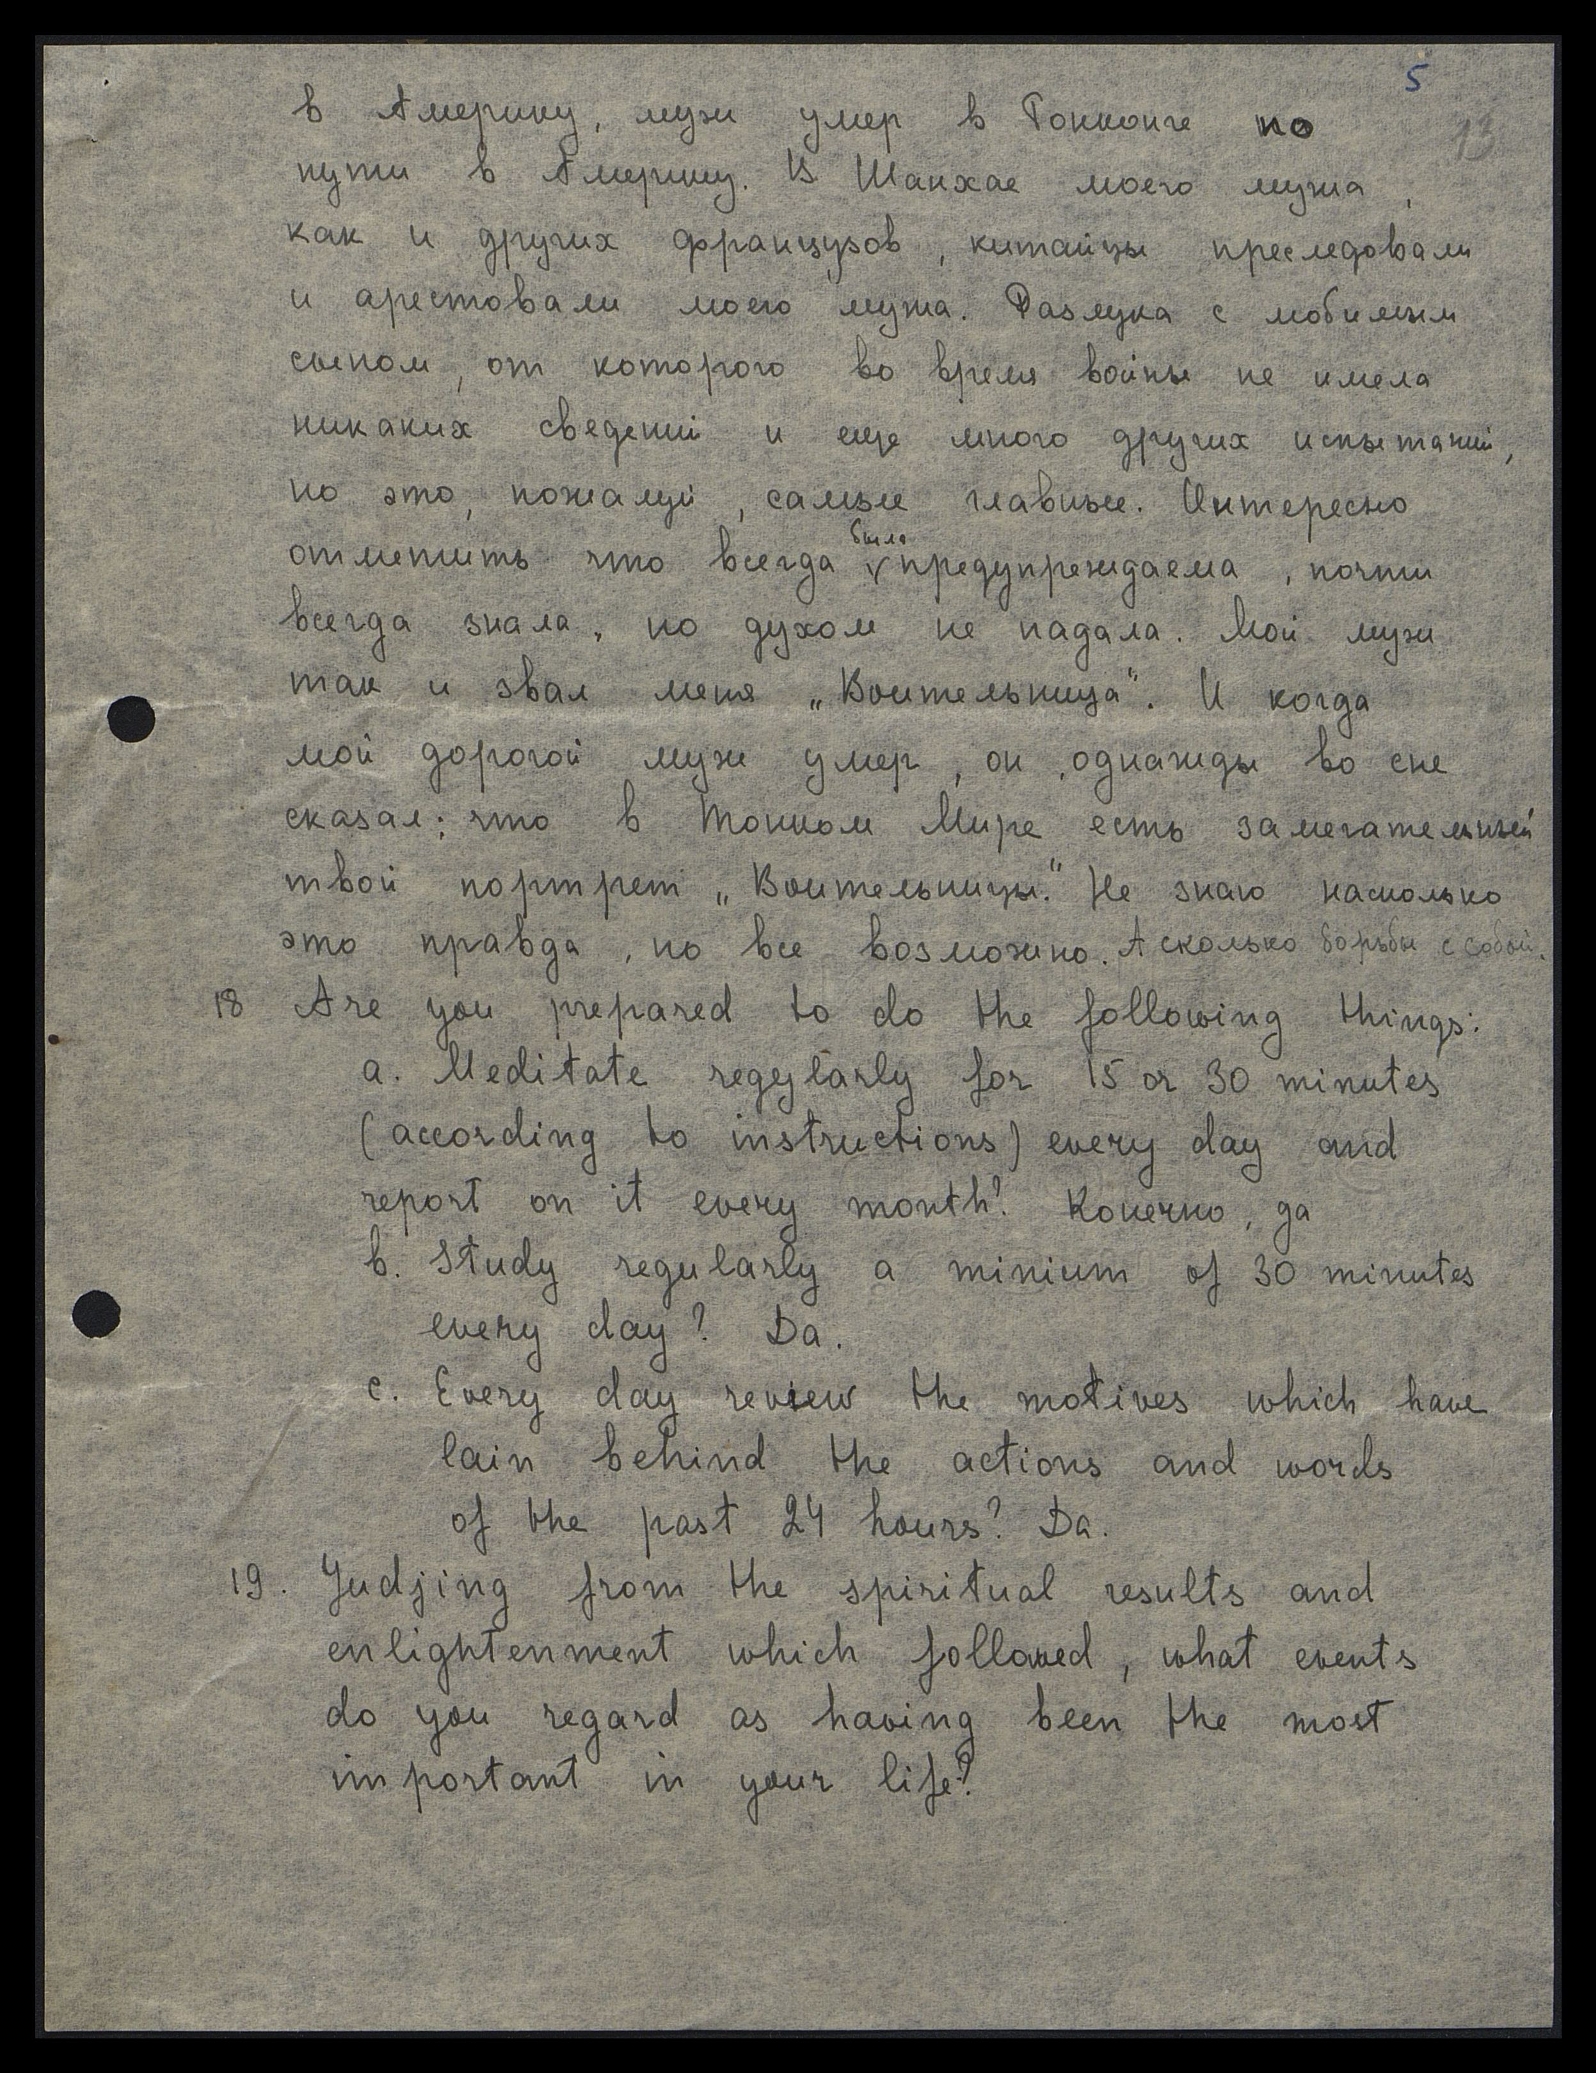 5
13
в Америку, муж умер в Гонконге по
пути в Америку. В Шанхае моего мужа,
как и других французов, китайцы преследовали
и арестовали моего мужа. Разлука с любимым
сыном, от которого во время войны не имела
никаких сведений и еще много других испытаний,
но это, пожалуй, самые главные. Интересно
была
отметить что всегда предупреждаема, почти
всегда знала, но духом не падала. Мой муж
так и звал меня „Воительница“. И когда
мой дорогой муж умер, он, однажды во сне
сказал; что в Тонком Мире есть замечательный
твой портрет „Воительницы.“ Не знаю насколько
это правда, но все возможно. А сколько борьбы с собой.
18 Are you prepared to do the following things:
a. Meditate regeylarly for 15 or 30 minutes
(according to instructions) every day and
report on it every month? Конечно, да
b. Study regularly a minium of 30 minutes
every day? Da.
c. Every day review the motives which have
lain behind the actions and words
of the past 24 hours? Da.
19. Judjing from the spiritual results and
enlightenment which followed, what events
do you regard as having been the most
important in your life?